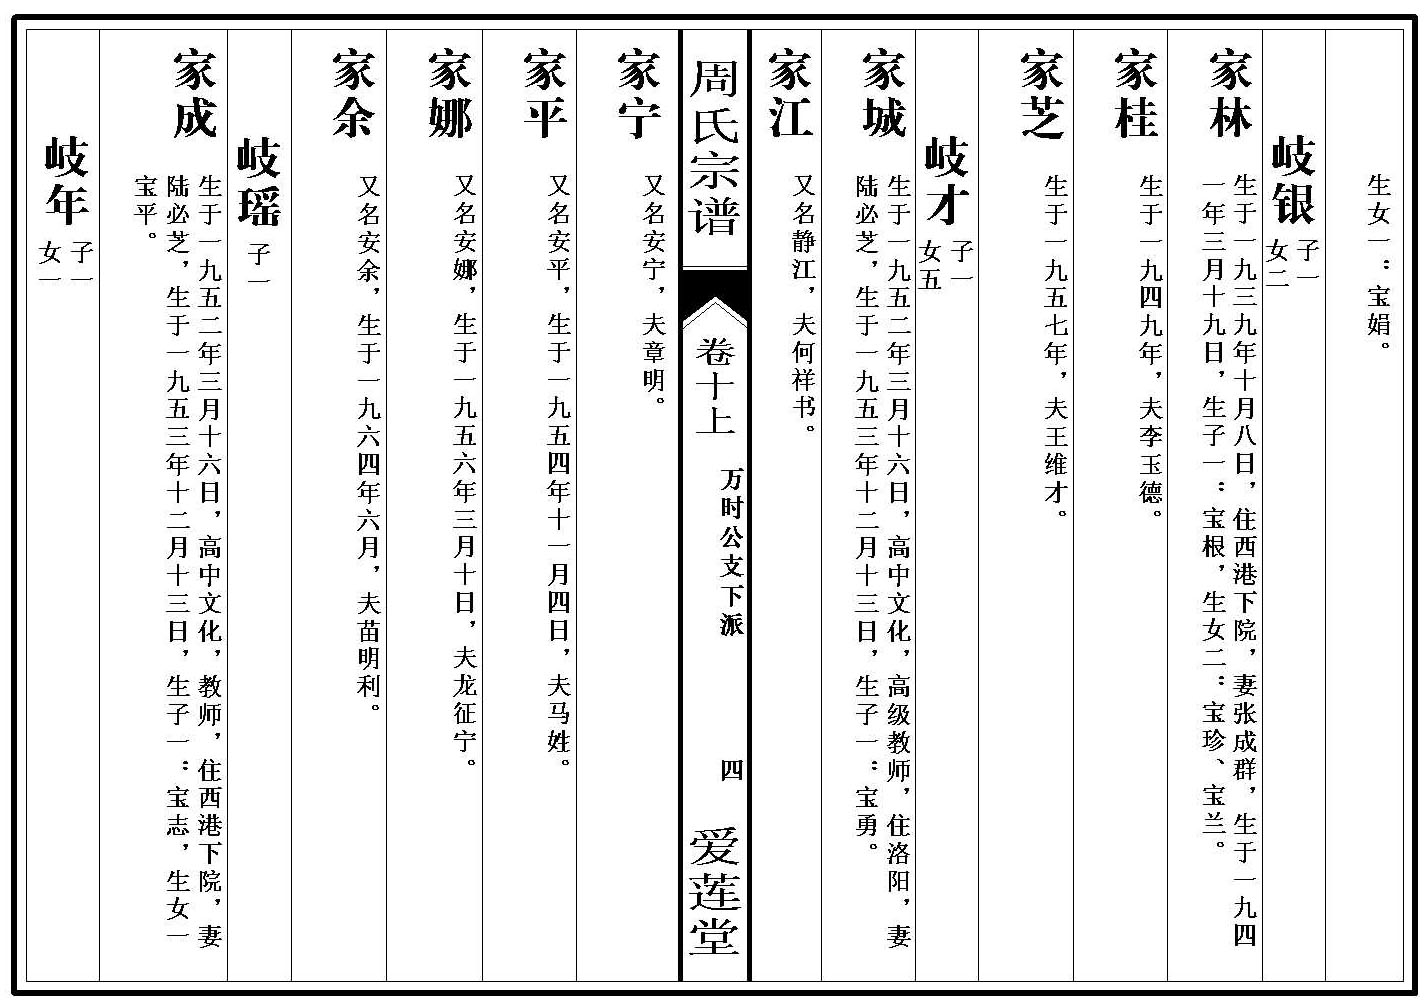 生女一：宝娟。
岐银
子一
女二
家林
生于一九三九年十月八日，住西港下院，妻张成群，生于一九四
一年三月十九日，生子一：宝根，生女二：宝珍、宝兰。
家桂
生于一九四九年，夫李玉德。
家芝
生于一九五七年，夫王维才。
岐才
子一
女五
家城
生于一九五二年三月十六日，高中文化，高级教师，住洛阳，妻
陆必芝，生于一九五三年十二月十三日，生子一：宝勇。
家江
又名静江，夫何祥书。
周氏宗谱
卷十上
万时公支下派
四
爱莲堂
家宁
又名安宁，夫章明。
家平
又名安平，生于一九五四年十一月四日，夫马姓。
家娜
又名安娜，生于一九五六年三月十日，夫龙征宁。
家余
又名安余，生于一九六四年六月，夫苗明利。
岐瑶
子一
家成
生于一九五二年三月十六日，高中文化，教师，住西港下院，妻
陆必芝，生于一九五三年十二月十三日，生子一：宝志，生女一
宝平。
岐年
子一
女一